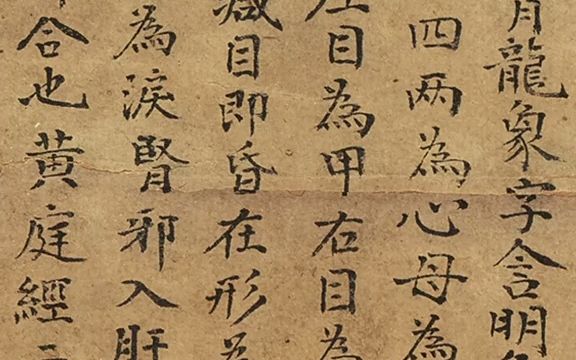 青龍象字含明
四两為心母為
左目為甲右目為
減目即昏在形為
為淚腎邪入肝
合也黄庭經